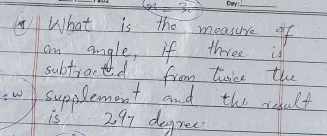 What is the measure of
an angle, if three is
subtracted from twice the
supplement and the result
is 297 degree